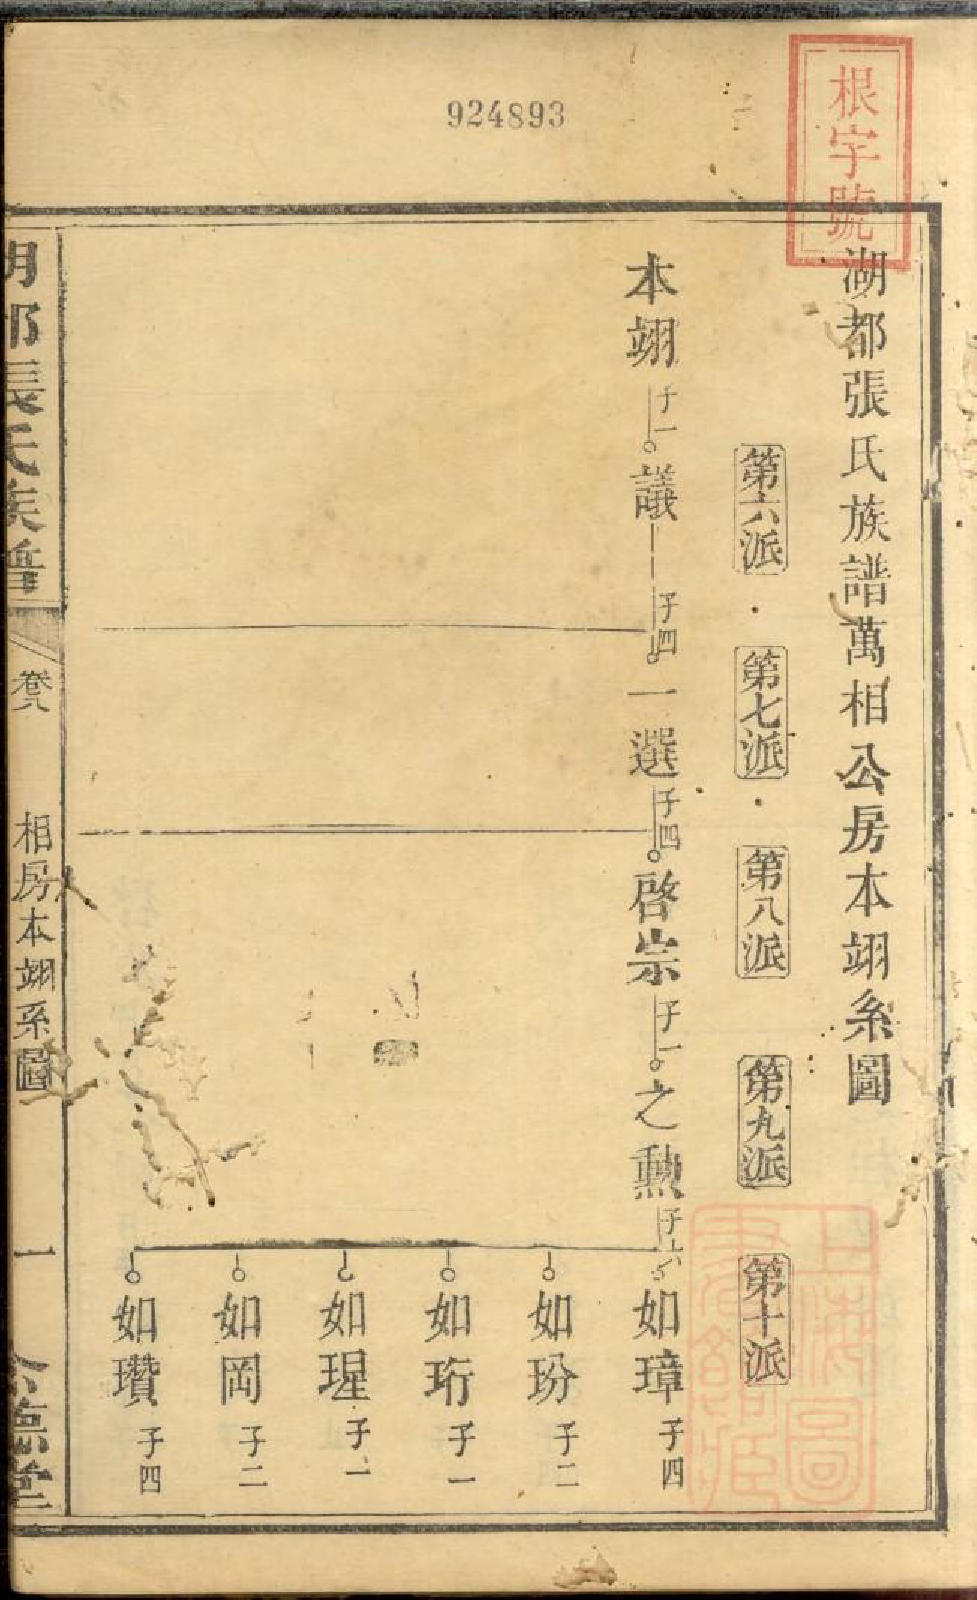 924893
根字號
湖都張氏族譜萬相公房本翊系圖
第六派
第七派
第八派
第九派
第十派
本翊
子一
議
子四
一選
子四
啓宗
子一
之勲
子六
如璋
子四
如玢
子二
如珩
子一
如瑆
子一
如岡
子二
如瓚
子四
湖都張氏族譜
卷八
相房本翊系圖
一
上海圖書館藏